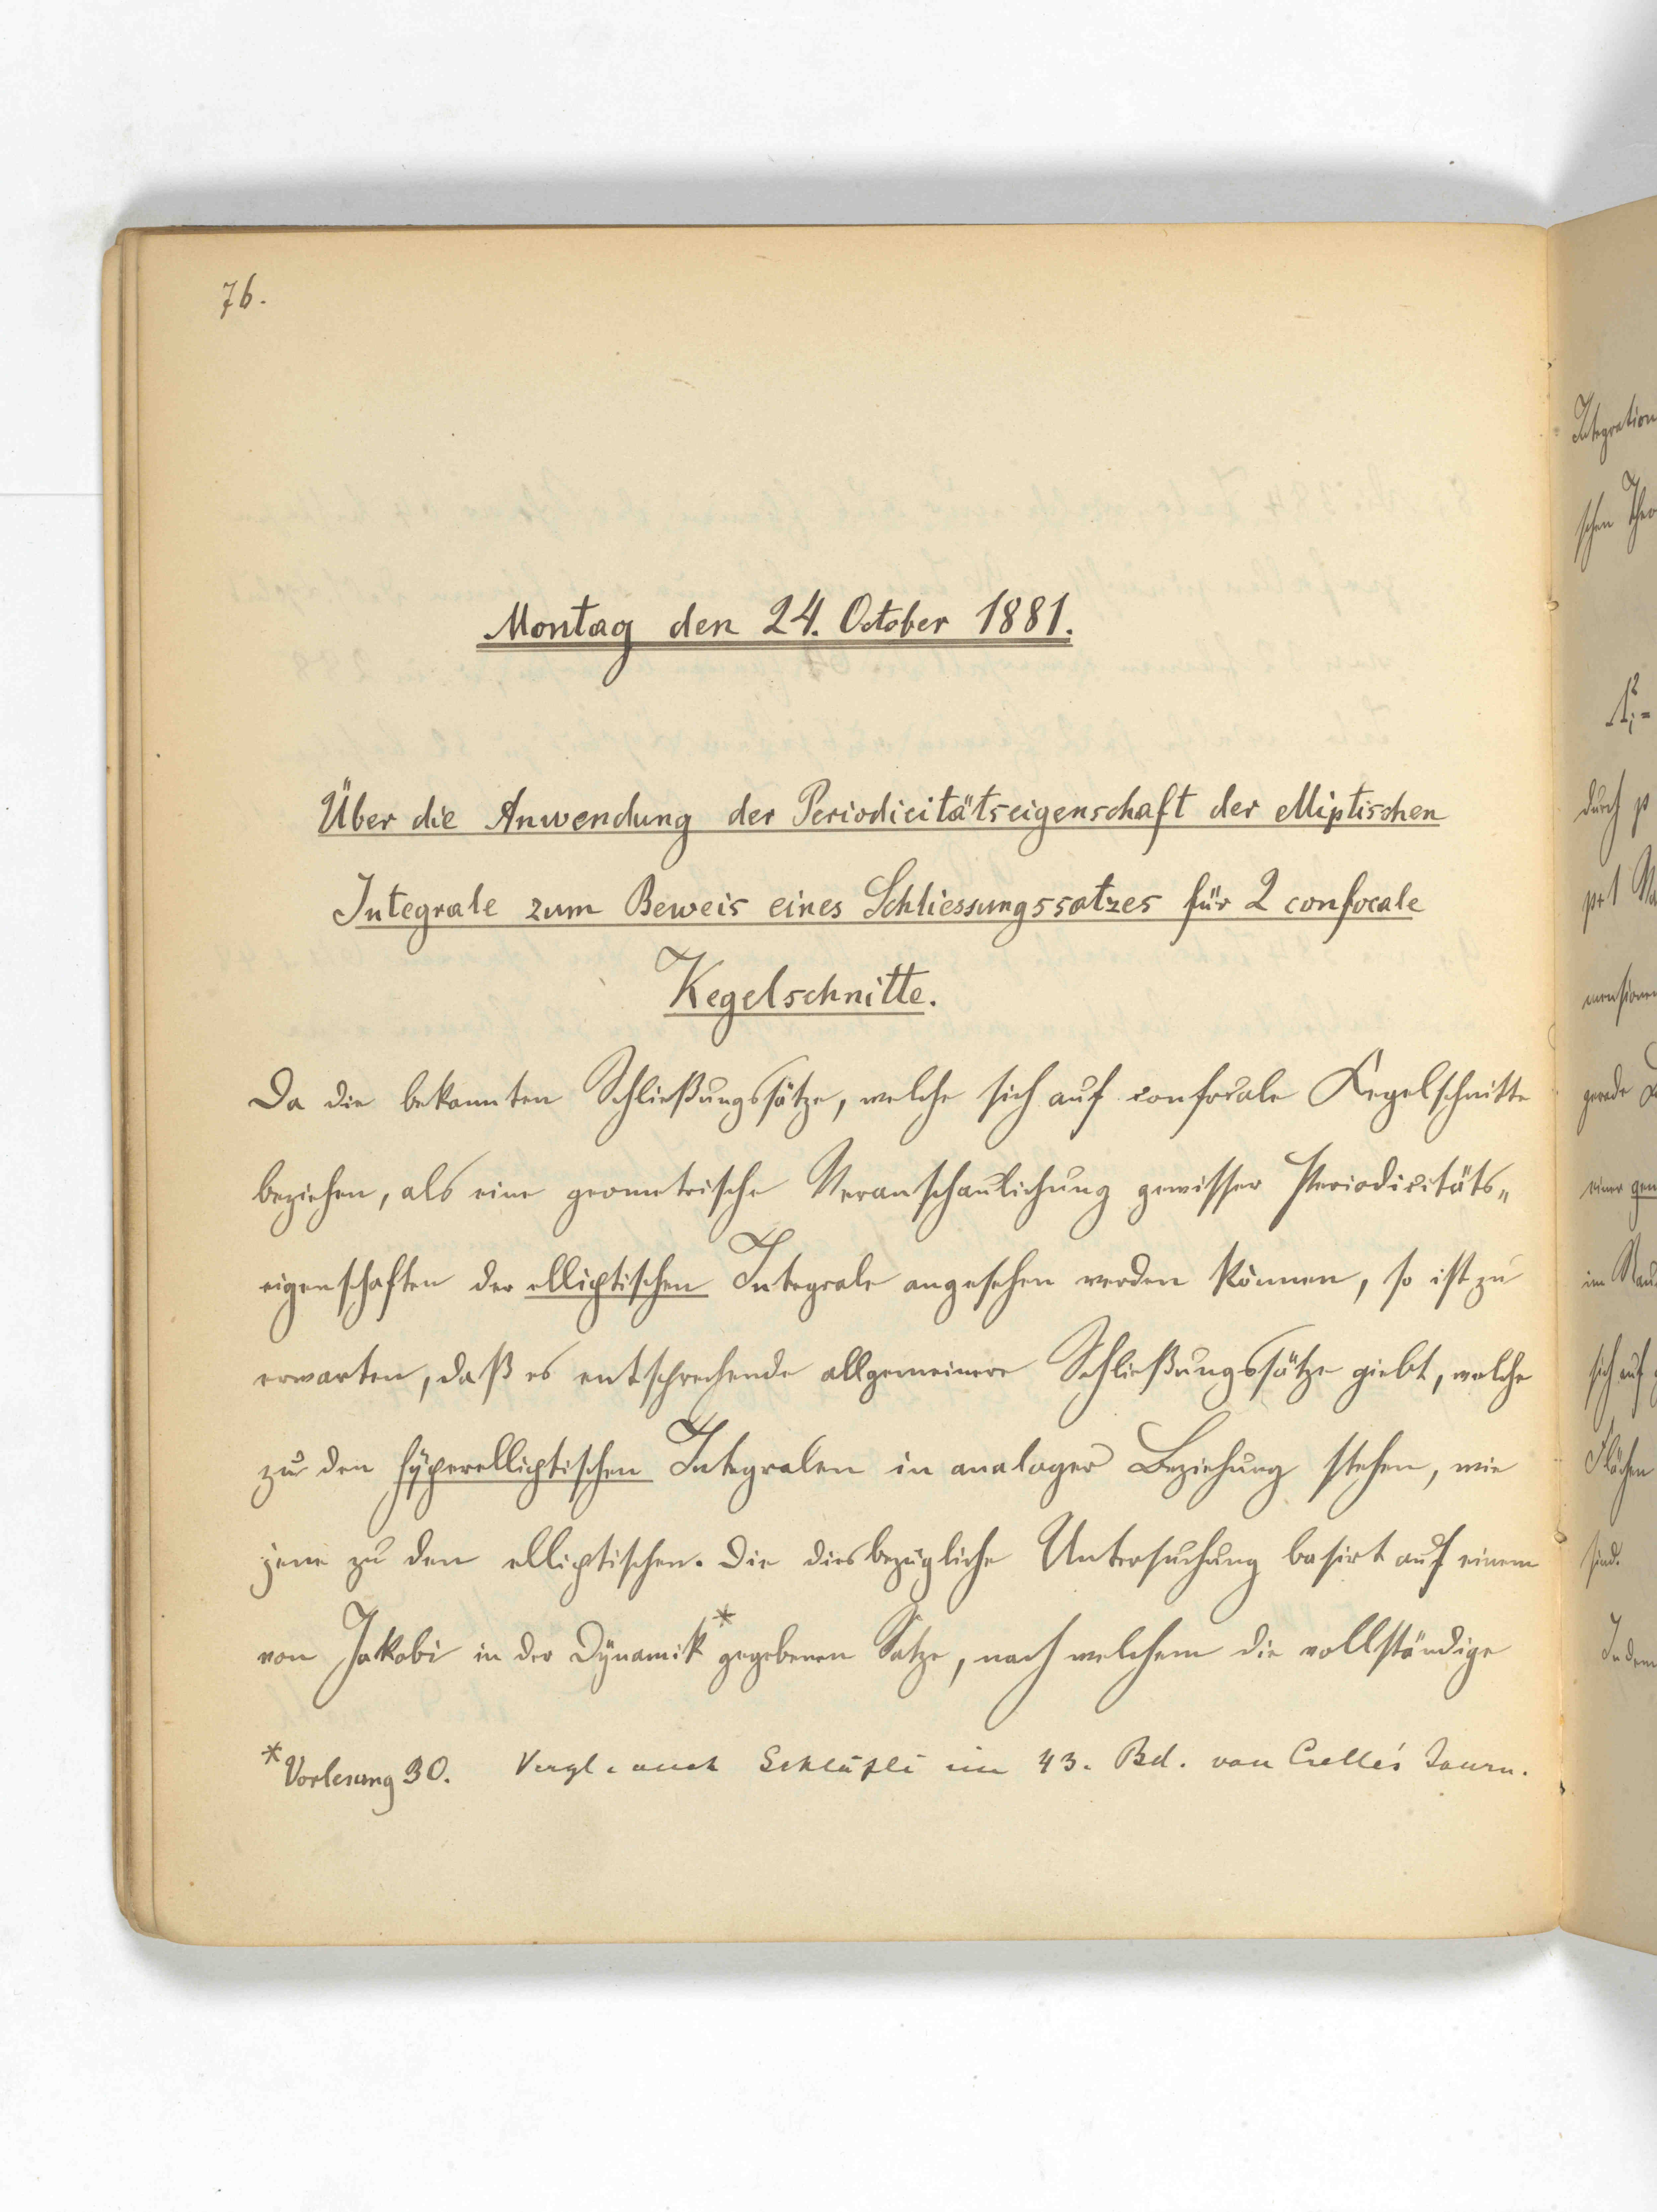 76.
Montag den 24. October 1881.
Über die Anwendung der Periodicitätseigenschaft der elliptischen
Integrale zum Beweis eines Schliessungssatzes für 2 confocale
Kegelschnitte.
Da die bekannten Schließungssätze, welche sich auf confocale Kegelschnitte
beziehen, als eine geometrische Veranschaulichung gewisser Periodicitäts„
eigenschaften der elliptischen Integrale angesehen werden können, so ist zu
erwarten, daß es entsprechende allgemeinere Schließungssätze giebt, welche
zu den hyperelliptischen Integralen in analoger Beziehung stehen, wie
jene zu den elliptischen. Die diesbezügliche Untersuchung basirt auf einem
von Jakobi in der Dynamik* gegebenen Satze, nach welchem die vollständige
*Vorlesung 30. Vergl. auch Schläfli im 43. Bd. von Crelle's Journ.
Integration
schen
durch p
gerade
einer
im
sich auf
Flächen
sind.
Indem